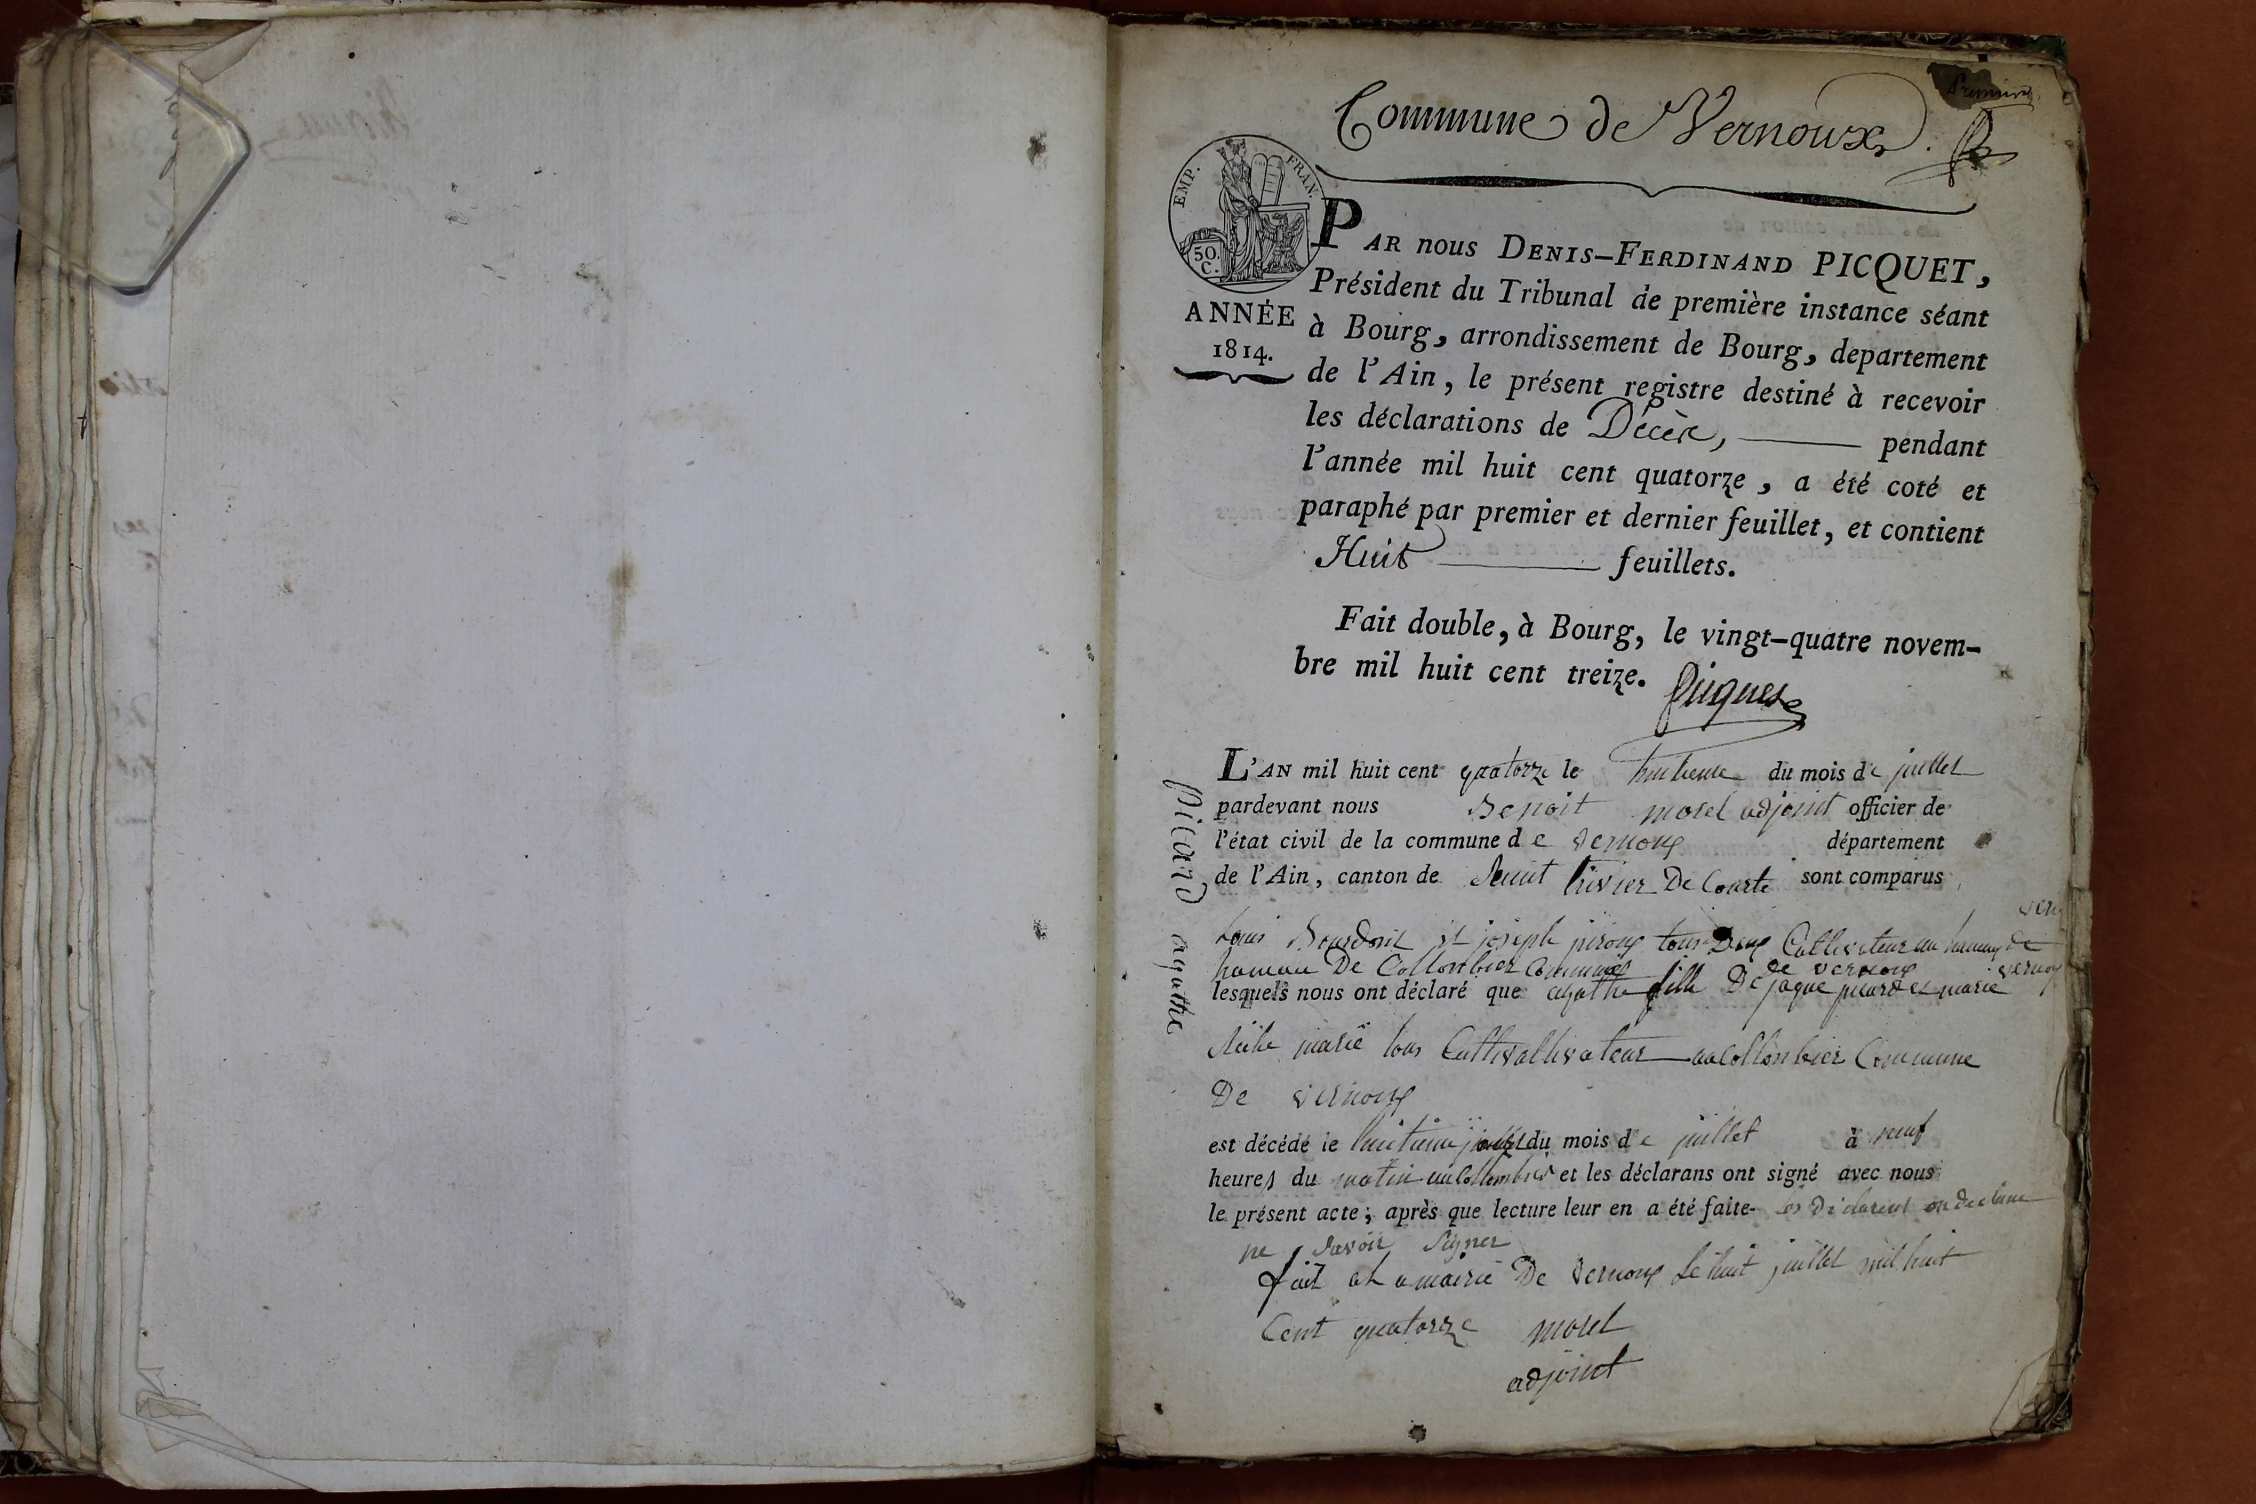 Premier
Commune de Vernoux.
EMP. FRAN.
50. C.
ANNÉE
1814.
PAR nous DENIS-FERDINAND PICQUET,
Président du Tribunal de première instance séant
à Bourg, arrondissement de Bourg, departement
de l'Ain, le présent registre destiné à recevoir
les déclarations de Décès, pendant
l'année mil huit cent quatorze, a été coté et
paraphé par premier et dernier feuillet, et contient
Huit feuillets.
Fait double, à Bourg, le vingt-quatre novem-
bre mil huit cent treize. Picquet
picard agathe
L'AN mil huit cent quatorze le huitieme du mois de juillet
pardevant nous Benoit morel adjoint officier de
l'état civil de la commune de vernoux département
de l'Ain, canton de Saint trivier De Courte sont comparus
Louis et joseph tous Deux Cultivateur au hameau de
hameau De Collonbier Commune de vernoux
lesquels nous ont déclaré que agathe fille De jaque picard et marie
marie tous Cultivaltivateur au Collonbier Commune
De vernoux
est décédé le huitieme jour du mois de juillet à neuf
heures du matin au Collombier et les déclarans ont signé avec nous
le présent acte; après que lecture leur en a été faite les Declarent on declare
ne savoir signer
fait a la mairie De vernoux Le huit juillet mil huit
Cent quatorze morel
adjoint